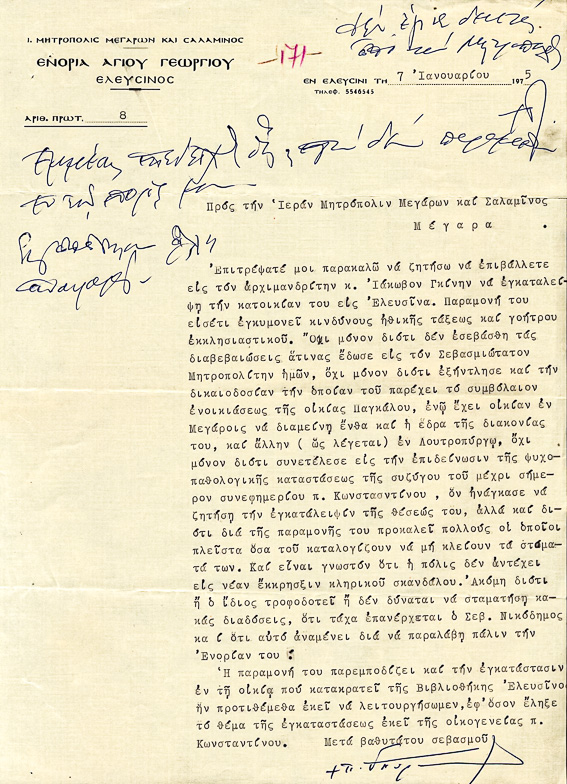 Ι. ΜΗΤΡΟΠΟΛΙΣ ΜΕΓΑΡΩΝ ΚΑΙ ΣΑΛΑΜΙΝΟΣ
ΕΝΟΡΙΑ ΑΓΙΟΥ ΓΕΩΡΓΙΟΥ
ΕΛΕΥΣΙΝΟΣ
-171-
ΕΝ ΕΛΕΥΣΙΝΙ ΤΗ 7 Ἰανουαρίου 1975
ΤΗΛΕΦ. 5546545
ΑΡΙΘ. ΠΡΩΤ. 8
Πρός τήν Ἱεράν Μητρόπολιν Μεγάρων καί Σαλαμῖνος
Μέγαρα .
Ἐπιτρέψατέ μοι παρακαλῶ νά ζητήσω νά ἐπιβάλλετε
εἰς τόν ἀρχιμανδρίτην κ. Ἰάκωβον Γκίνην νά ἐγκαταλεί-
ψη τήν κατοικίαν του εἰς Ἐλευσῖνα. Παραμονή του
εἰσέτι ἐγκυμονεῖ κινδύνους ἠθικῆς τάξεως καί γοήτρου
ἐκκλησιαστικοῦ. Ὄχι μόνον διότι δέν ἐσεβάσθη τάς
διαβεβαιώσεις ἅτινας ἔδωσε εἰς τόν Σεβασμιώτατον
Μητροπολίτην ἡμῶν, ὄχι μόνον διότι ἐξήντλησε καί τήν
δικαιοδοσίαν τήν ὁποίαν τοῦ παρέχει τό συμβόλαιον
ἐνοικιάσεως τῆς οἰκίας Παγκάλου, ἐνῷ ἔχει οἰκίαν ἐν
Μεγάροις νά διαμείνη ἔνθα καί ἡ ἕδρα τῆς διακονίας
του, καί ἄλλην ( ὡς λέγεται) ἐν Λουτροπύργῳ, ὄχι
μόνον διότι συνετέλεσε εἰς τήν ἐπιδείνωσιν τῆς ψυχο-
παθολογικῆς καταστάσεως τῆς συζύγου τοῦ μέχρι σήμε-
ρον συνεφημερίου π. Κωνσταντίνου , ὅν ἠνάγκασε νά
ζητήση τήν ἐγκατάλειψίν τῆς θέσεώς του, ἀλλά καί δι-
ότι διά τῆς παραμονῆς του προκαλεῖ πολλούς οἱ ὁποῖοι
πλεῖστα ὅσα τοῦ καταλογίζουν νά μή κλείουν τά στόμα-
τά των. Καί εἶναι γνωστόν ὅτι ἡ πόλις δέν ἀντέχει
εἰς νέαν ἔκρηξιν κληρικοῦ σκανδάλου. Ἀκόμη διότι
ἤ ὁ ἴδιος τροφοδοτεῖ ἤ δέν δύναται νά σταματήση κα-
κάς διαδόσεις, ὅτι τάχα ἐπανέρχεται ὁ Σεβ. Νικόδημος
κα ί ὅτι αὐτό ἀναμένει διά νά παραλάβη πάλιν τήν
Ἐνορίαν του .
Ἡ παραμονή του παρεμποδίζει καί τήν ἐγκατάστασιν
ἐν τῇ οἰκίᾳ πού κατακρατεῖ τῆς Βιβλιοθήκης Ἐλευσῖνος
ἥν προτιθέμεθα ἐκεῖ νά λειτουργήσωμεν, ἐφ' ὅσον ἔληξε
τό θέμα τῆς ἐγκαταστάσεως ἐκεῖ τῆς οἰκογενείας π.
Κωνσταντίνου. Μετά βαθυτάτου σεβασμοῦ